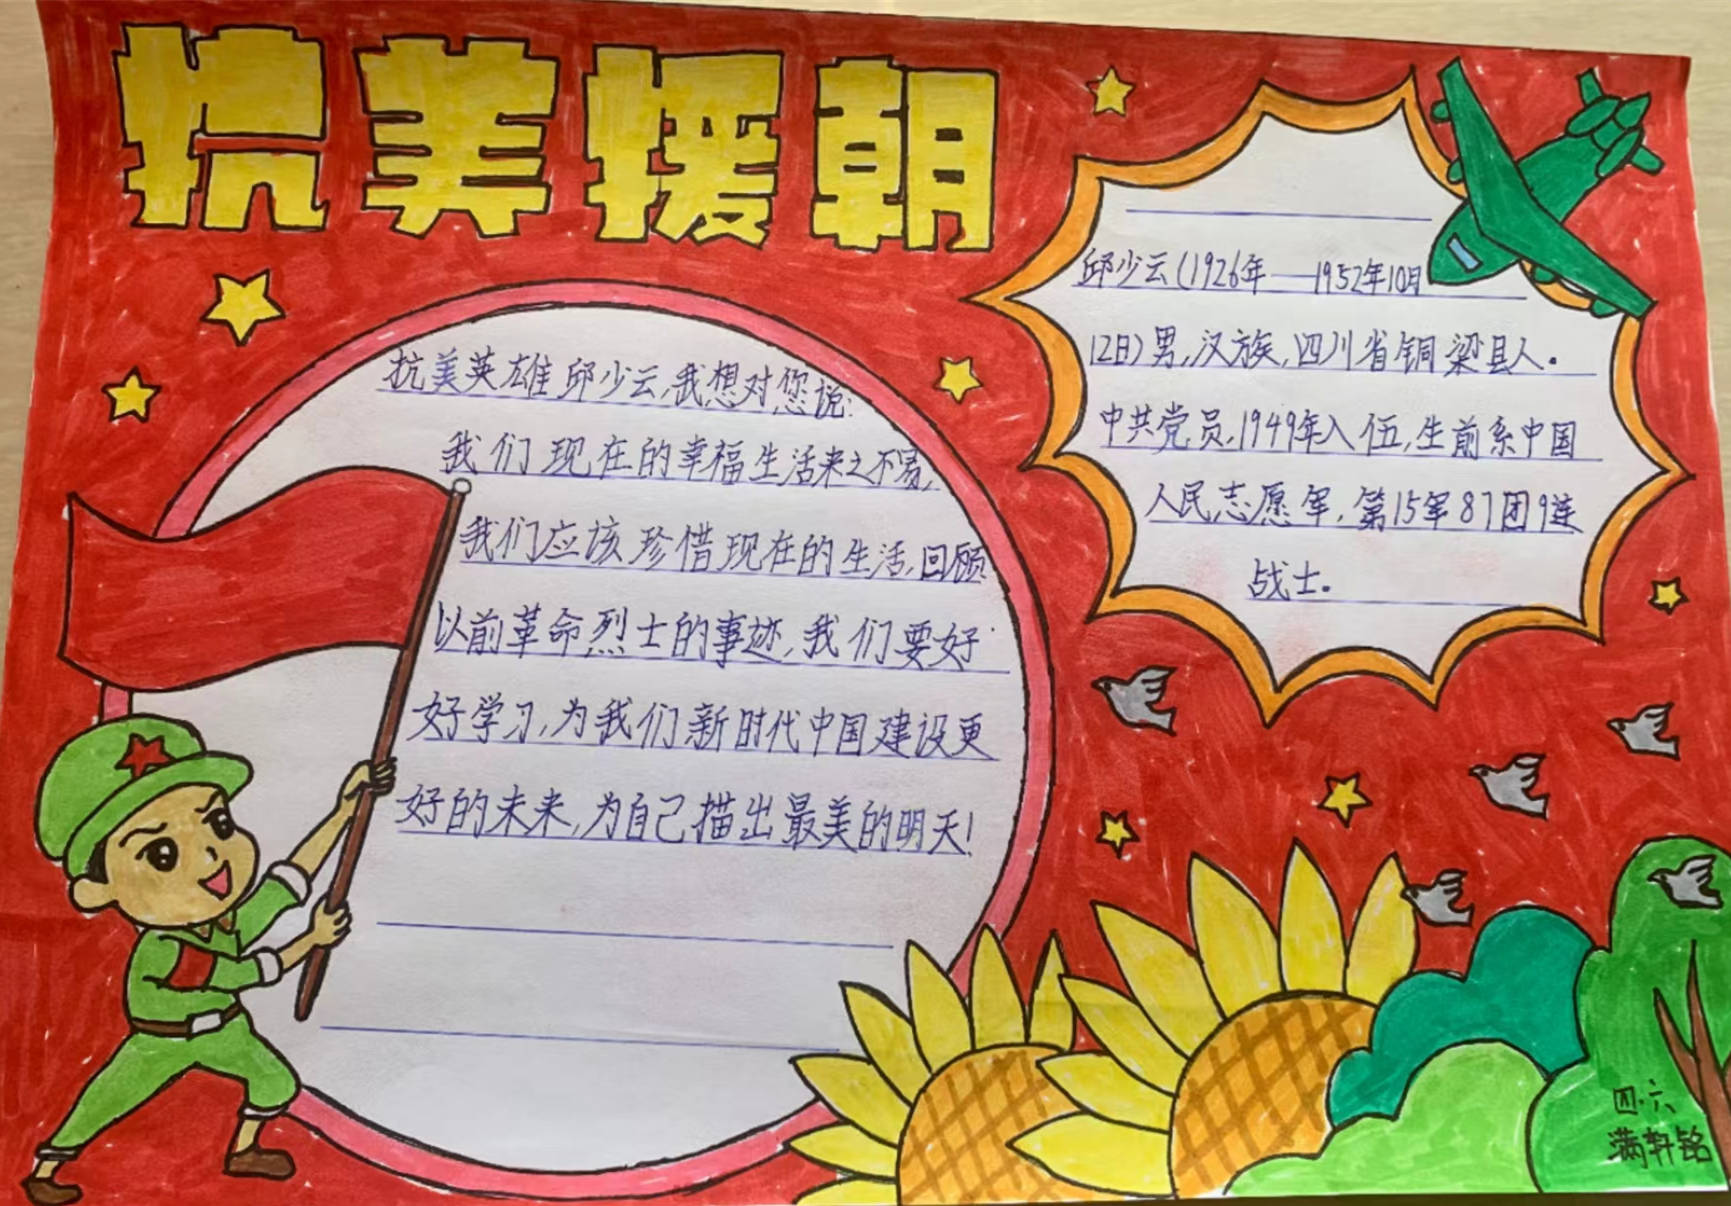 抗美援朝
抗美英雄邱少云,我想对您说:
我们现在的幸福生活来之不易,
我们应该珍惜现在的生活,回顾
以前革命烈士的事迹,我们要好
好学习,为我们新时代中国建设更
好的未来,为自己描出最美的明天!
邱少云(1926年——1952年10月
12日)男,汉族,四川省铜梁县人。
中共党员,1949年入伍,生前系中国
人民志愿军,第15军87团9连
战士。
四·六
满轩铭